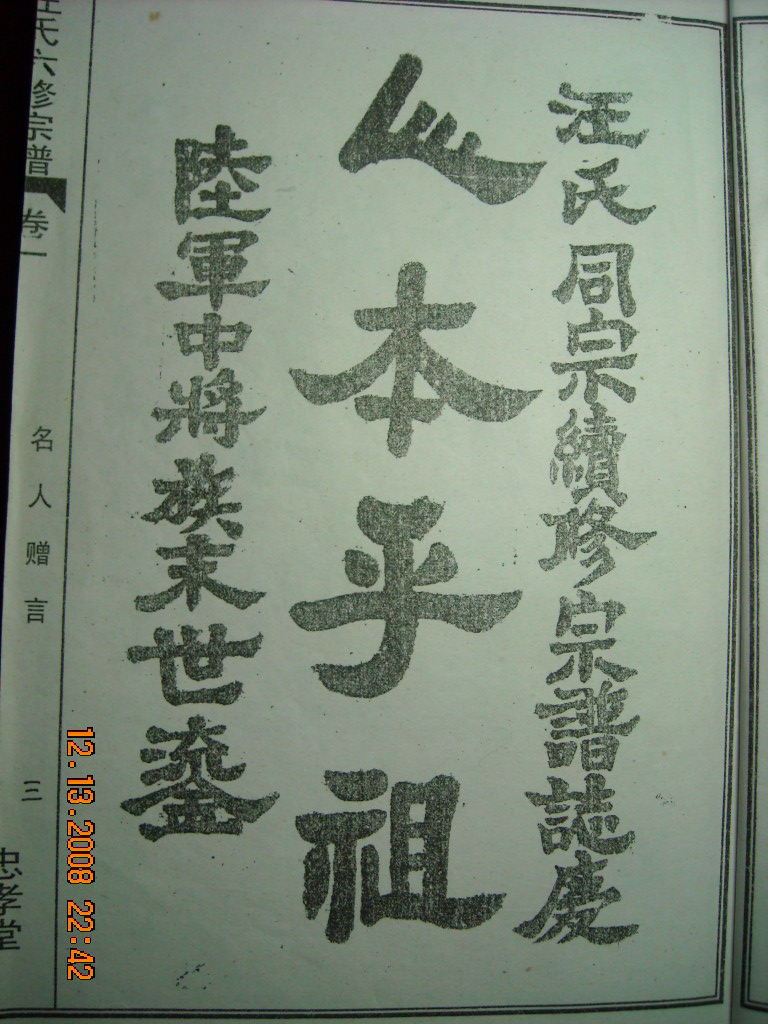 汪氏同宗續修宗譜誌慶
人本乎祖
陸軍中將族末世鎏
汪氏六修宗譜
卷一
名人赠言
三
忠孝堂
12.13.2008 22:42